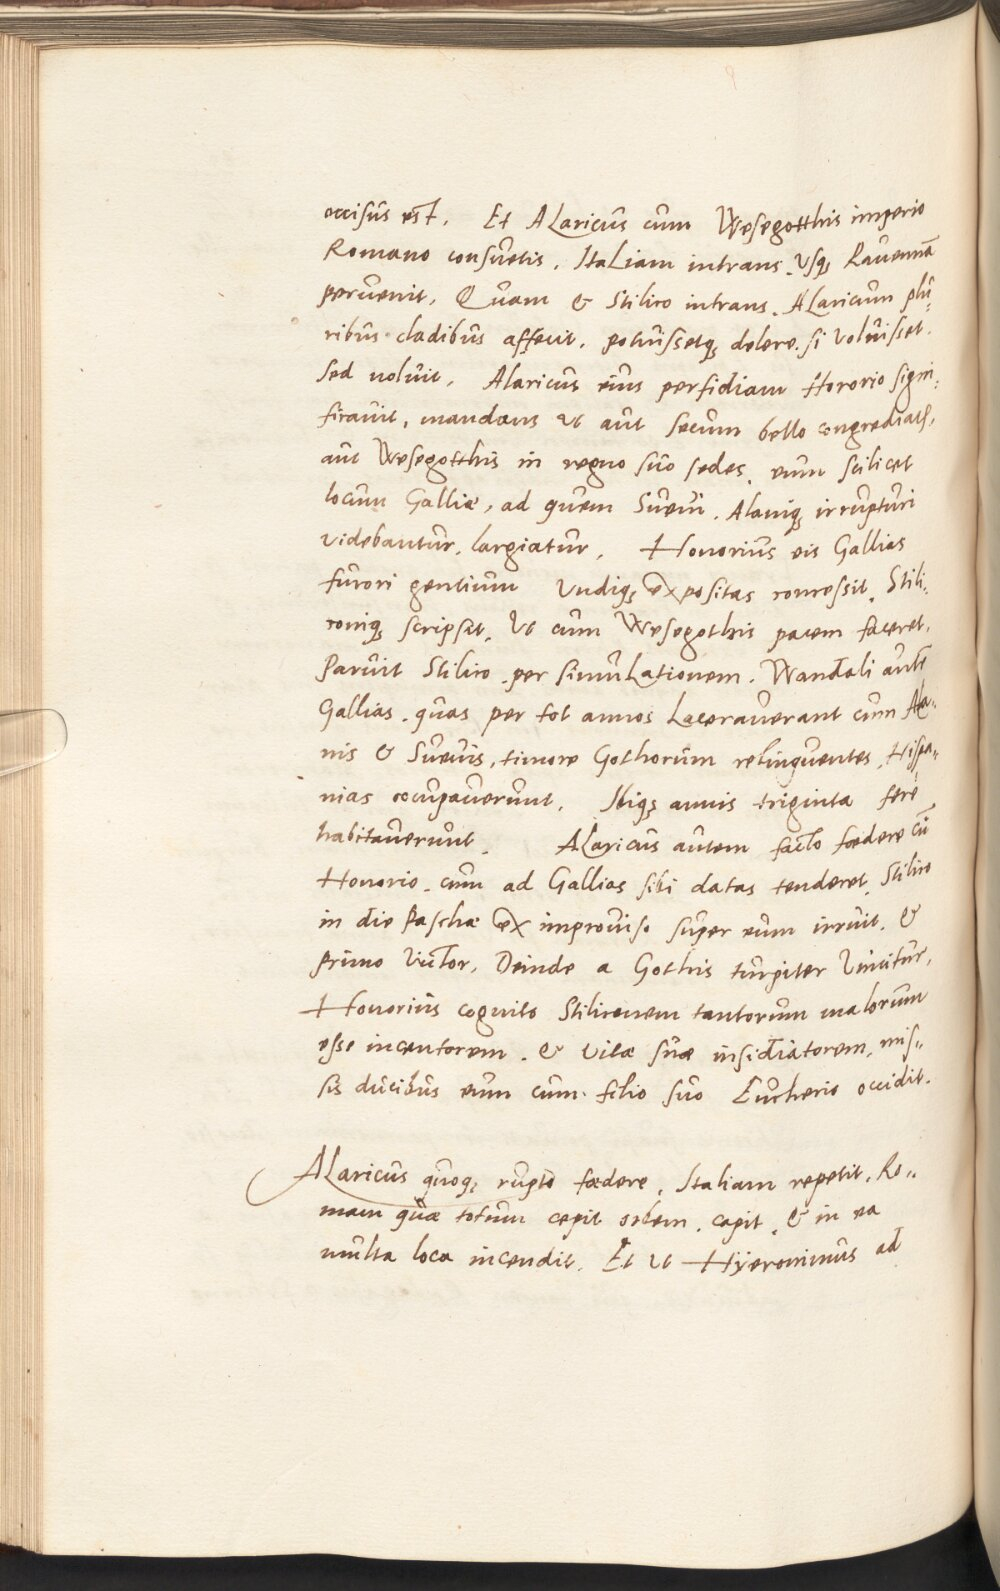 occisus est. Et Alaricus cum Wesegotthis imperio
Romano consuetis, Italiam intrans, usq; Ravennā
pervenit, Quam & Stilico intrans, Alaricum plu-
ribus cladibus affecit, potuissetq; delere, si voluisset.
sed noluit, Alaricus eius perfidiam Honorio signi-
ficavit, mandans ut aut secum bello congrediat(ur),
aut Wesegotthis in regno suo sedes, eum scilicet
locum Galliæ, ad quem Suevi, Alaniq; irrupturi
videbantur, largiatur, Honorius eis Gallias
furori gentium undiq; expositas concessit, Stili-
coniq; scripsit, ut cum Wesegothis pacem faceret,
Paruit Stilico per simulationem. Wandali autē
Gallias, quas per tot annos laceraverant cum Ala-
nis & Suevis, timore Gothorum relinquentes, Hispa-
nias occupaverunt. Ibiq; annis triginta ferè
habitaverunt. Alaricus autem facto fœdere cū
Honorio, cum ad Gallias sibi datas tenderet, Stilico
in die Paschæ ex improviso super eum irruit, &
primo victor, Deinde a Gothis turpiter vincitur,
Honorius cognito Stiliconem tantorum malorum
esse incentorem, & vitæ suæ insidiatorem, mis-
sis ducibus eum cum filio suo Eucherio occidit.
Alaricus quoq; rupto fœdere, Italiam repetit, Ro-
mam quæ totum cepit orbem, capit, & in ea
multa loca incendit. Et ut Hÿeronimus ad